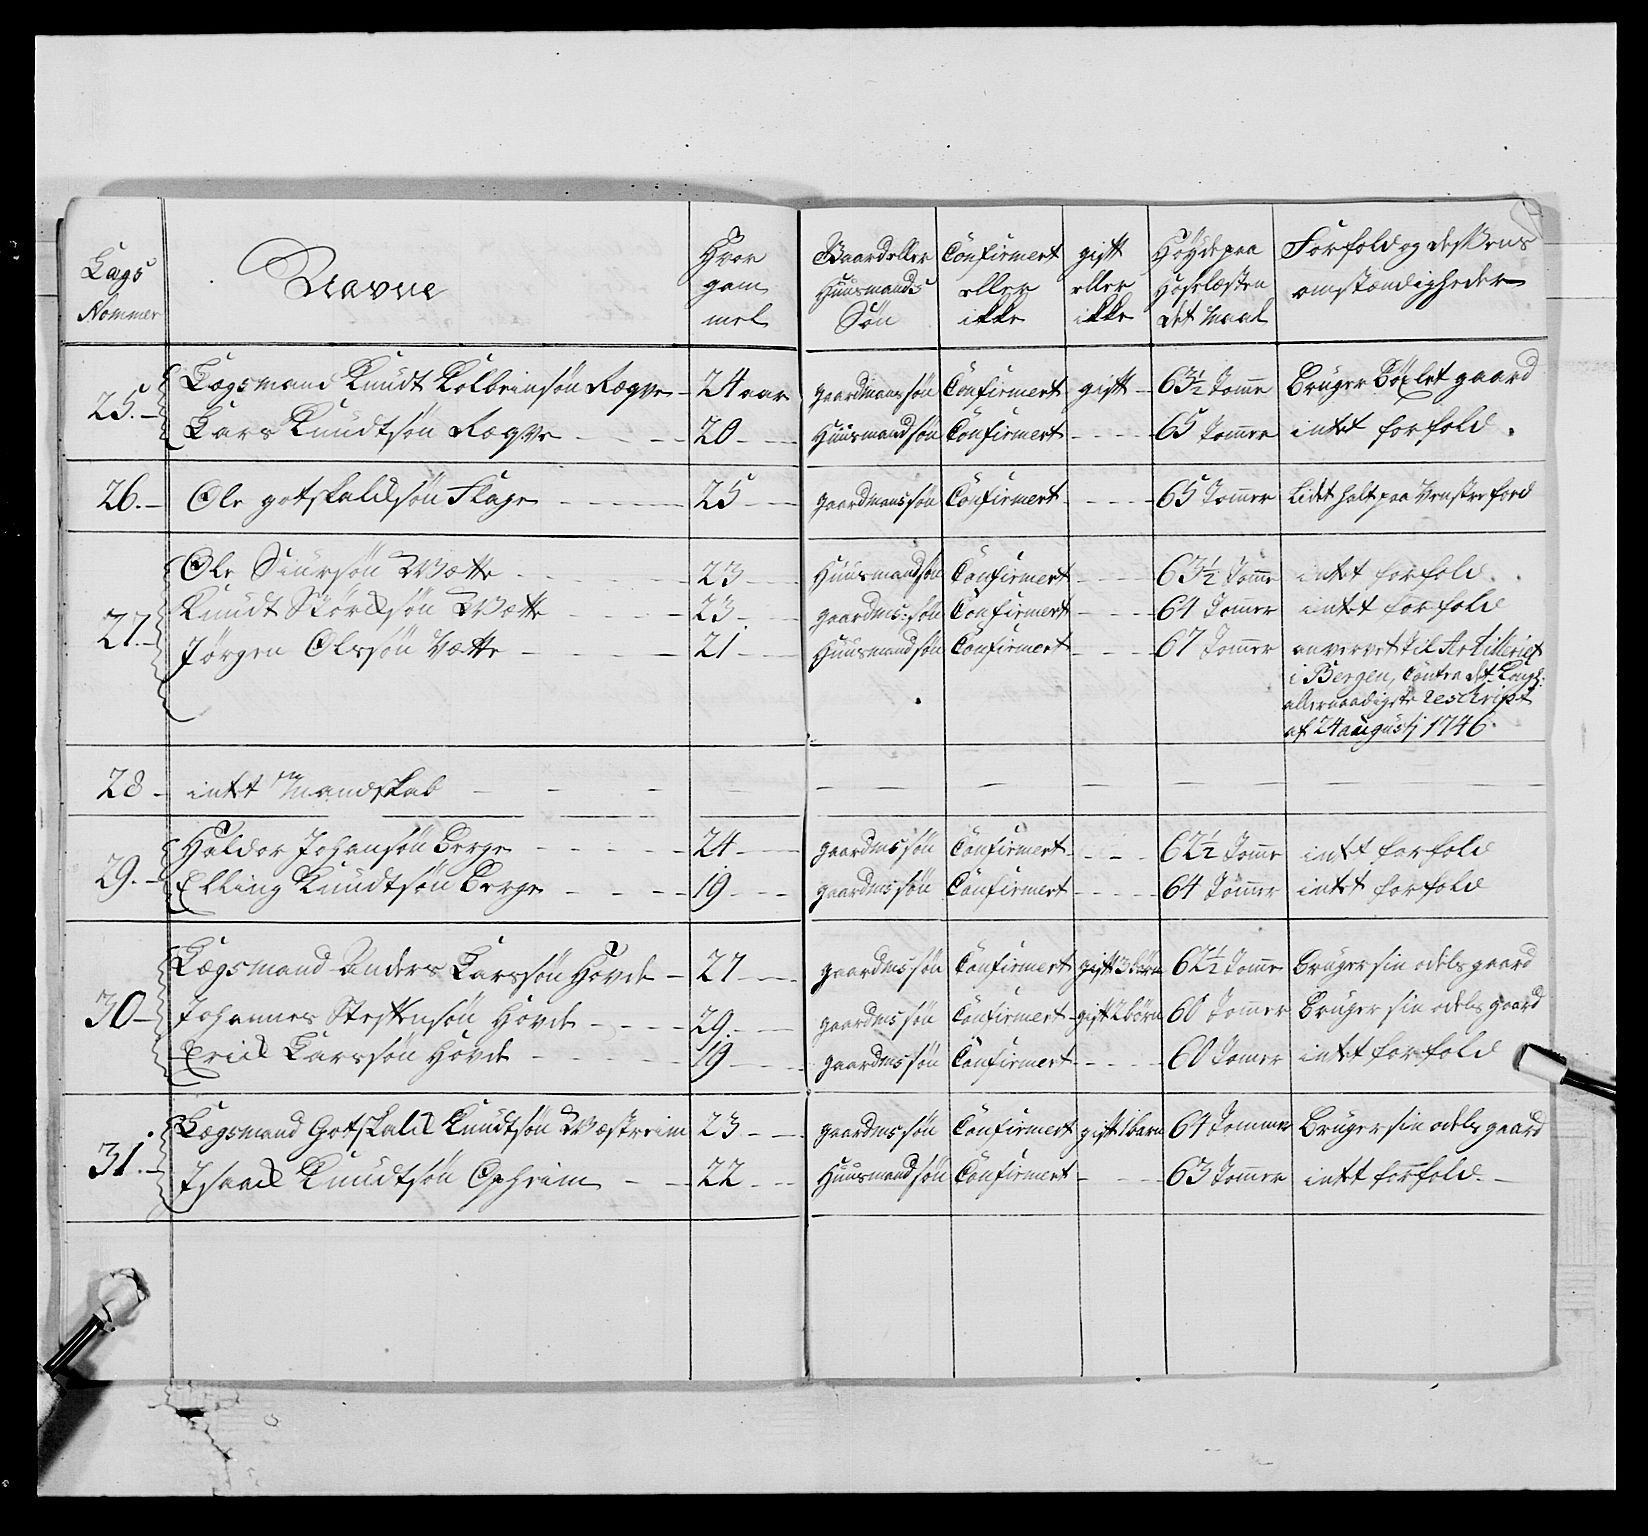 Lags Nommer | Navne | Hvor gammel | Gaard eller Huusmands Søn | Confirmert eller ikke | gift eller ikke | Høyde paa Hoselæsten det Maal | Forfold og dessens omstændigheder
25. Lægsmand Knudt Kolbeinsøn Rogve - 24 aar gaardmans søn Confirmert gift - 63½ Tomme Bruger Bøxlet gaard
Lars Knudtsøn Rogve - 20 - Huusmand søn Confirmert - 65 Tommer intet forfold.
26. Ole gotskalksøn Flage - 25 - gaardmans søn Confirmert - 65 Tommer Lidt halt paa venstre foed
27. Ole Siursøn Wætte - 23 - Huusmand søn Confirmert - 63½ Tomme intet forfold.
Knudt Størksøn Wætte - 23 - gaardms: søn Confirmert - 64 Tommer intet forfold
Jørgen Olssøn Vætte - 21 - Huusmand søn Confirmert - 67 Tommer anvervet til Artilleriet
i Bergen, Contra det Kongl:
allernaadigste rescript
af 24 augustj 1746.
28 - intet Mandskab
29. Haldor Johansøn Berge - 24 - gaardms søn Confirmert - 62½ Tomme intet forfold
Elling Knudtsøn Berge - 19 - gaardms søn Confirmert - 64 Tommer intet forfold
30 - Lægsmand Anders Larssøn Hovde - 27 - gaardms søn Confirmert gift 3 børn 62½ Tomme Bruger sin odels gaard
Johannes Steffensøn Hovde - 29. - gaardms søn Confirmert gift 2 børn 60 Tommer Bruger sin odels gaard
Erick Larssøn Hovde - 19 - gaardms søn Confirmert - 60 Tomer intet forfold
31. Lægsmand Gotskalck Knudtsøn Wæstreim 23 - gaardms søn Confirmert gift 1 barn 64 Tommer Bruger sin odels gaard
Isaack Knudtsøn - 22 - Huusmand søn Confirmert - 63 Tommer intet forfold. -